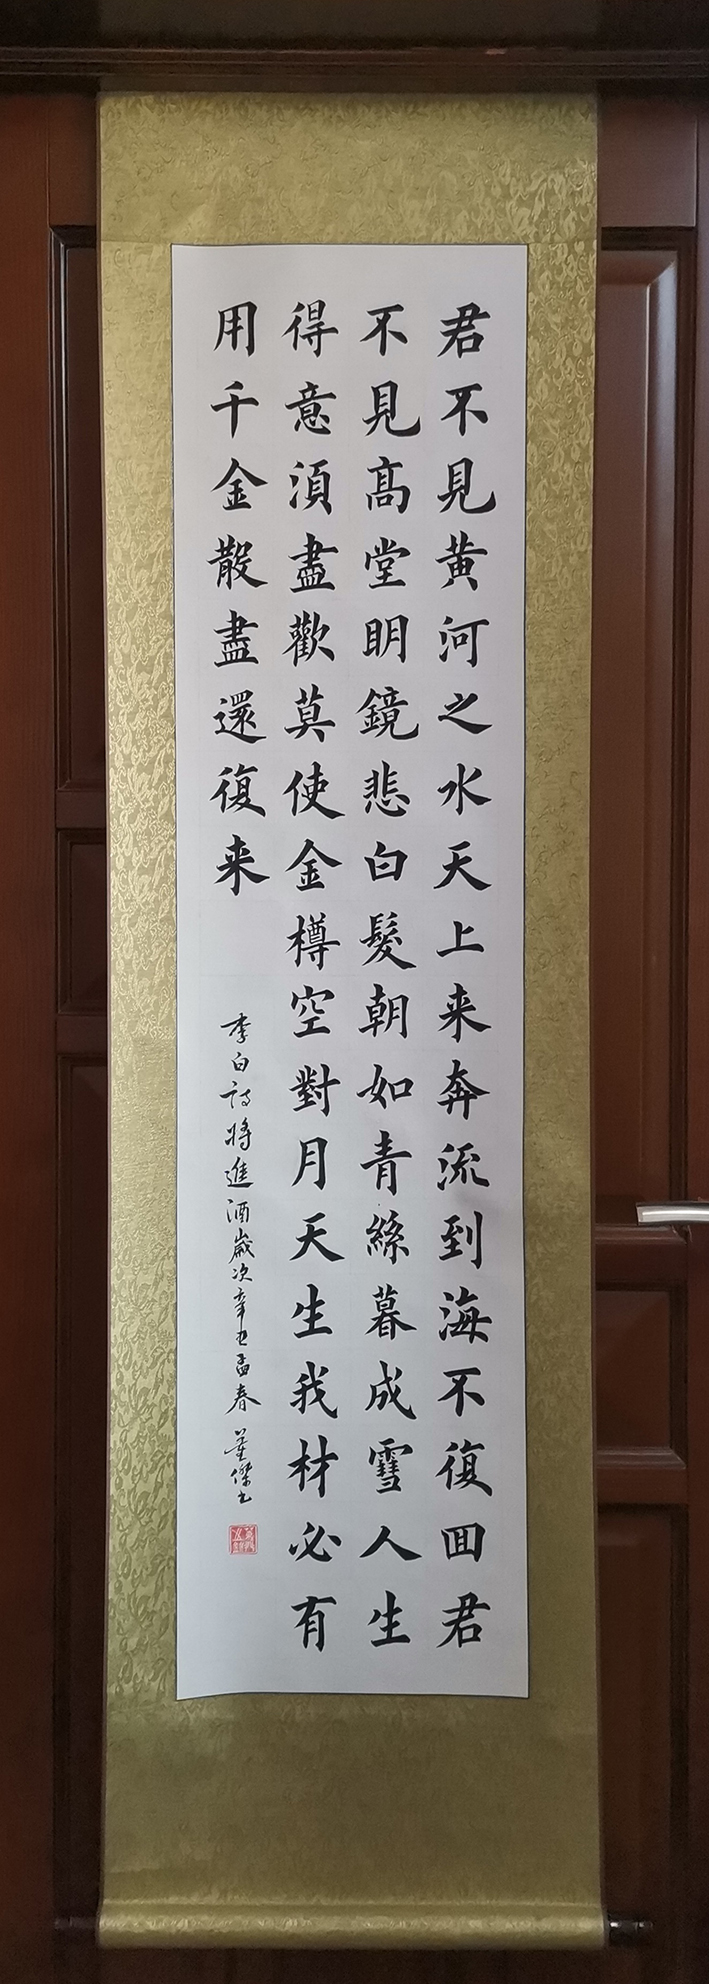 君不見黃河之水天上来奔流到海不復回君
不見高堂明鏡悲白髮朝如青絲暮成雪人生
得意須盡歡莫使金樽空對月天生我材必有
用千金散盡還復来
李白詩將進酒歲次辛丑孟春 董傑书